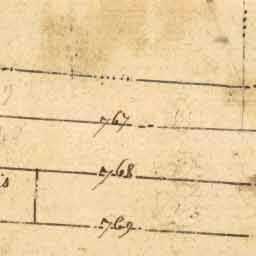 767
768
is
769